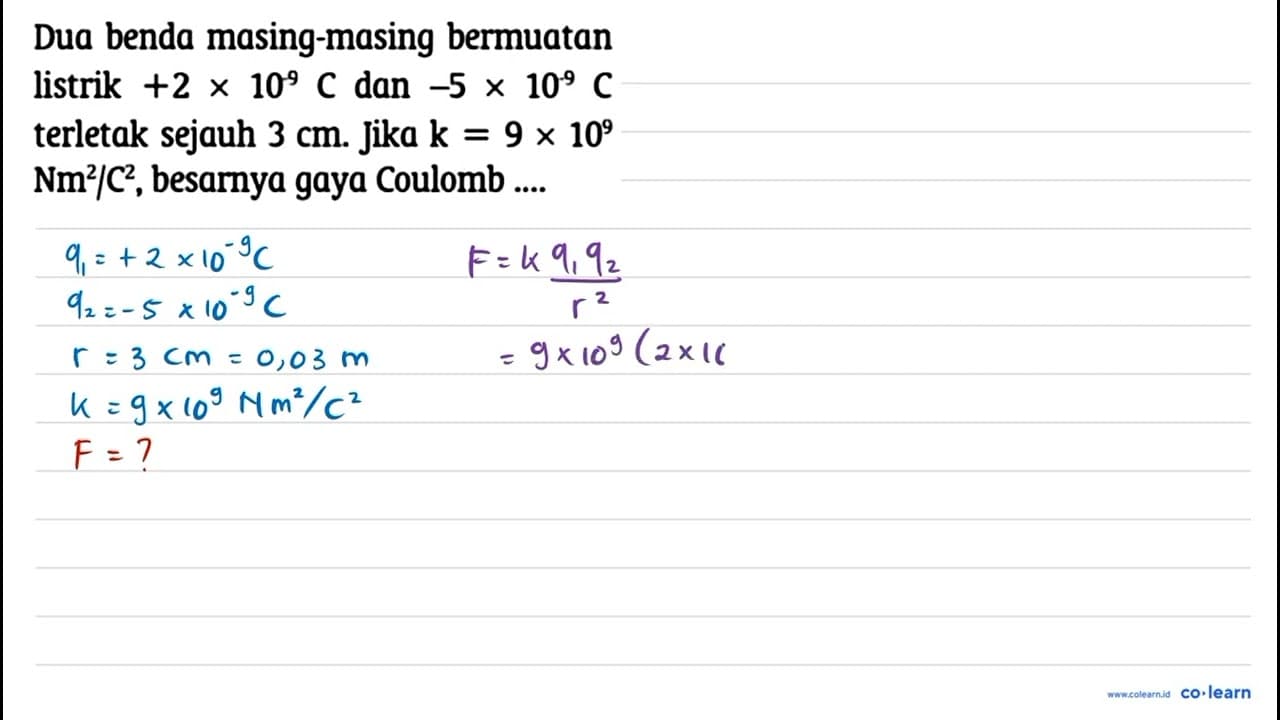 Dua benda masing-masing bermuatan
listrik +2 × 10⁻⁹ C dan –5 × 10⁻⁹ C
terletak sejauh 3 cm. Jika k = 9 × 10⁹
Nm²/C², besarnya gaya Coulomb ....
q₁ = + 2 × 10⁻⁹ C
q₂ = - 5 × 10⁻⁹ C
r = 3 cm = 0,03 m
k = 9 × 10⁹ Nm²/C²
F = ?
F = k q₁ q₂
r²
= 9 × 10⁹ (2 × 1(
www.colearn.id co·learn